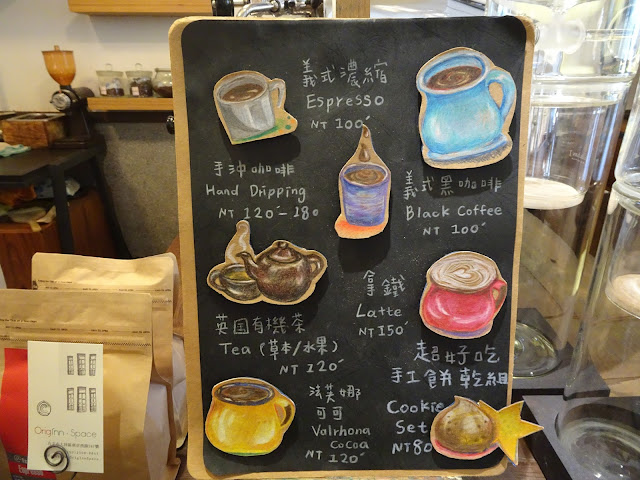 義式濃縮
Espresso
NT 100
手沖咖啡
Hand Dripping
NT 120-180
義式黑咖啡
Black Coffee
NT 100
英国有機茶
Tea (草本/水果)
NT 120
拿鐵
Latte
NT 150
法芙娜
可可
Valrhona
CoCoa
NT 120
超好吃
手工餅乾組
Cookie
Set
NT80
OrigInn Space